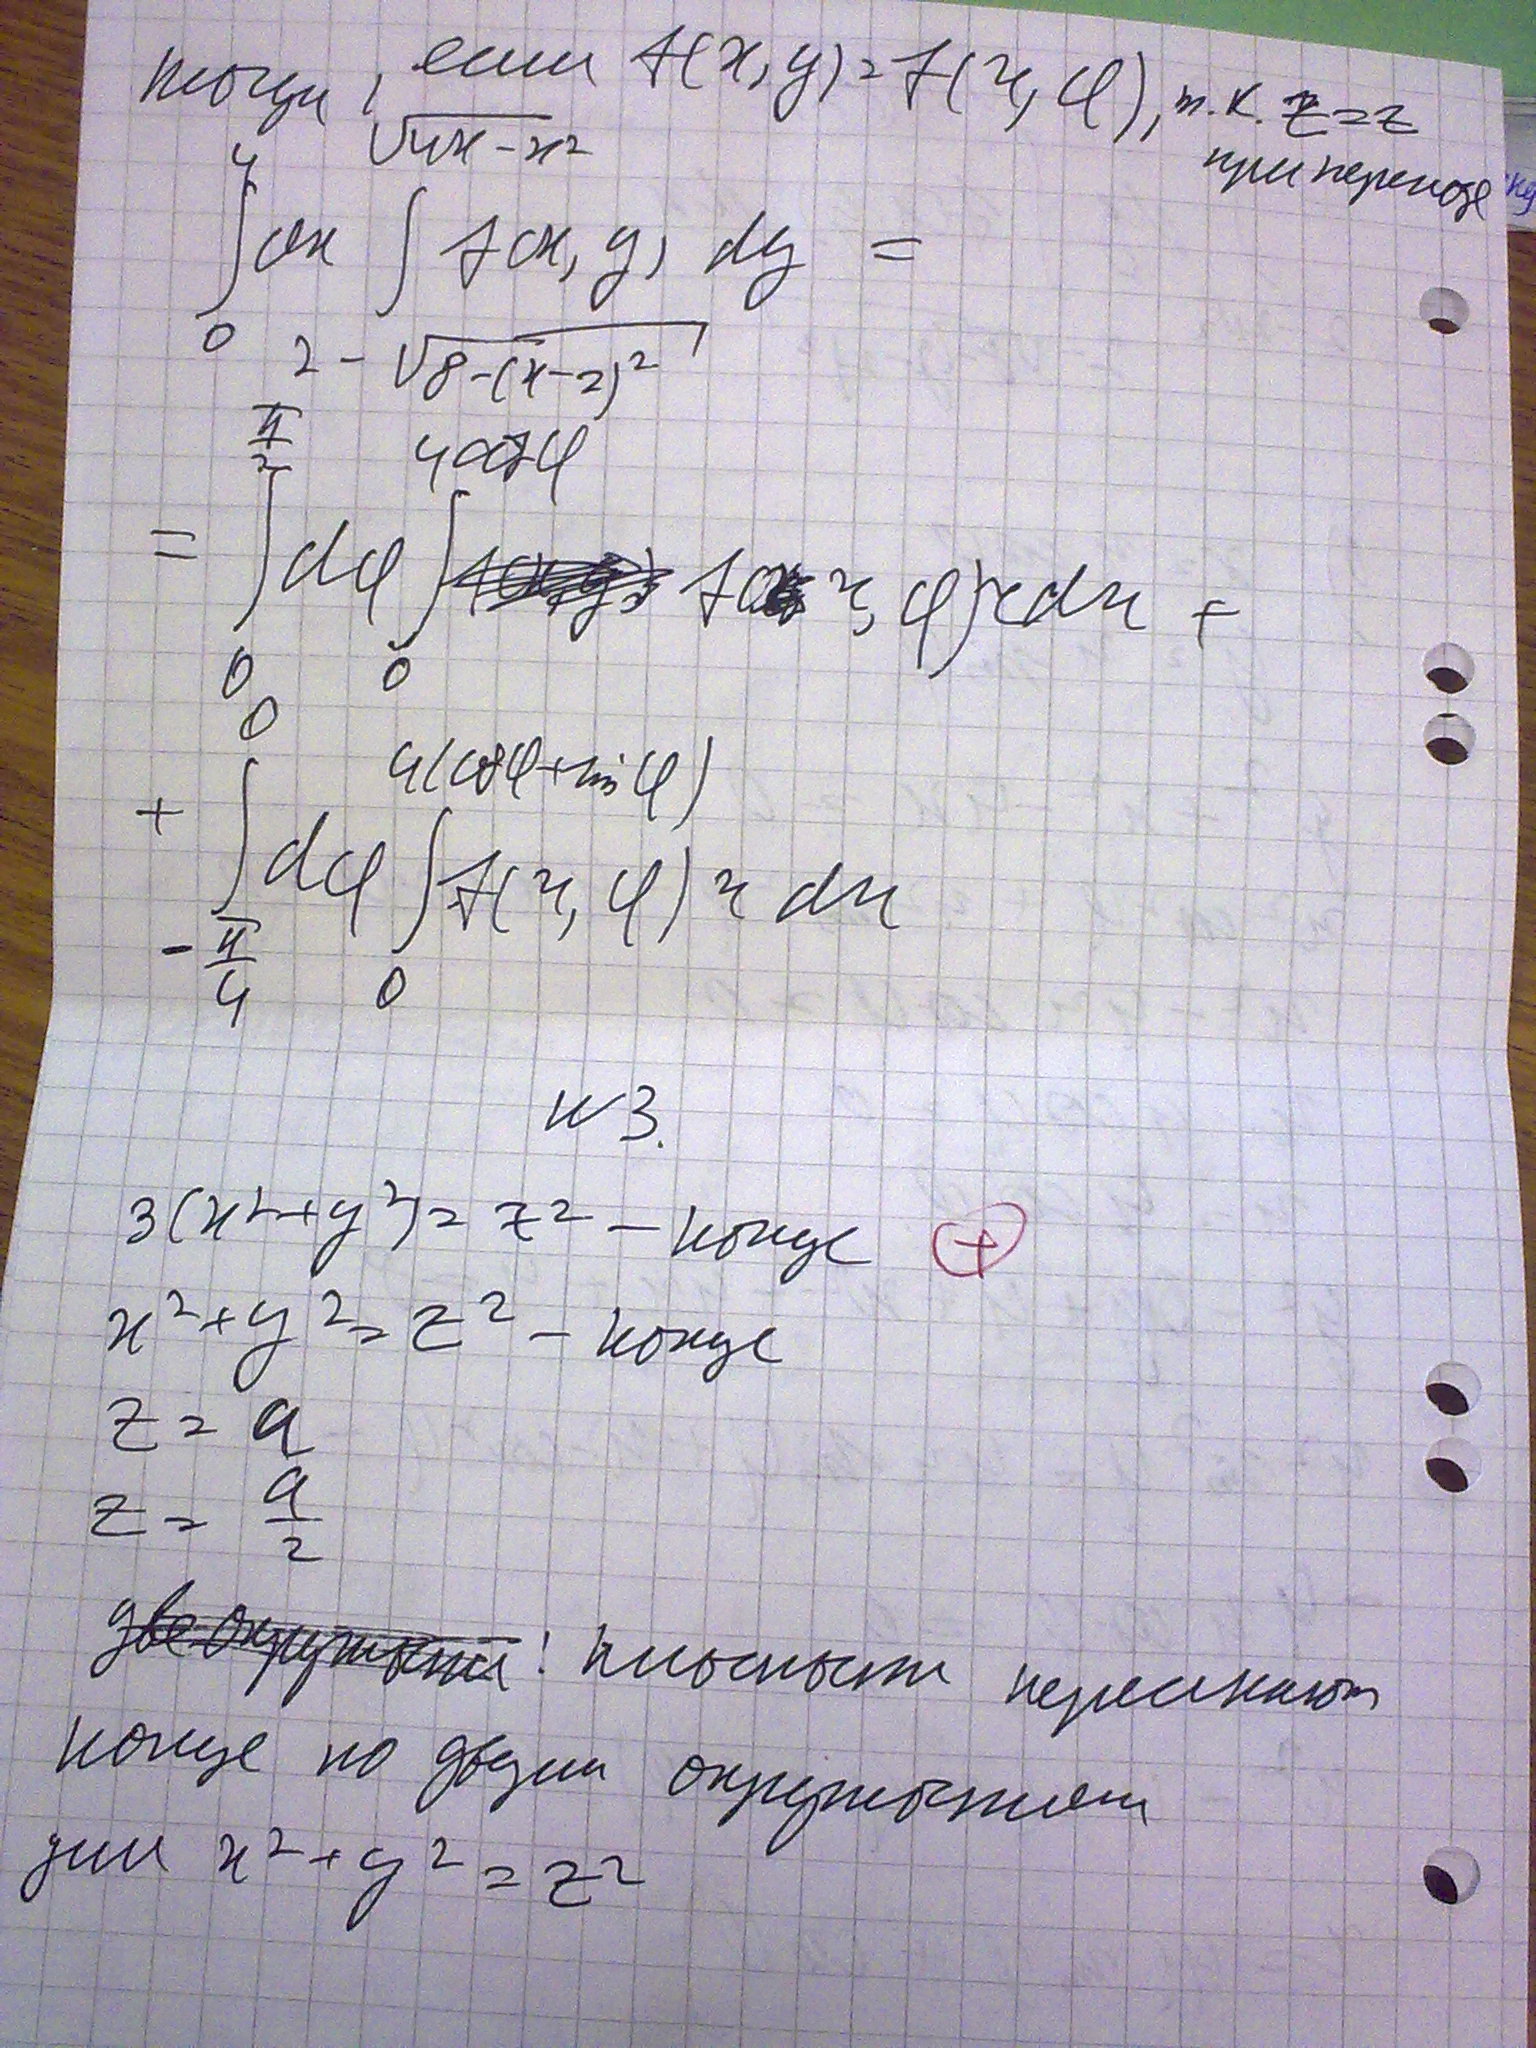 тогда, если f(x, y) = f(r, φ), т.к. z = z
при переходе
4 √4x-x²
∫dx ∫ f(x, y) dy =
0 2-√8-(x-2)²
π/2 4cosφ
= ∫dφ ∫ f(r, φ) r dr +
0 0
0 4(cosφ+sinφ)
+ ∫dφ ∫ f(r, φ) r dr
-π/4 0
N3.
3(x²+y²) = z² - конус +
x²+y² = z² - конус
z = a
z = a/2
две окружности: плоскости пересекают
конус по двум окружностям
для x²+y² = z²